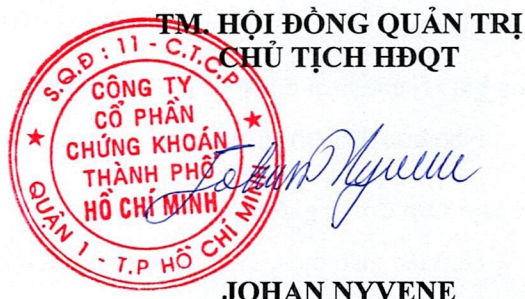 TM. HỘI ĐỒNG QUẢN TRỊ
CHỦ TỊCH HĐQT
S.Q.Đ : 11 - C.T.C.P
CÔNG TY
CỔ PHẦN
CHỨNG KHOÁN
THÀNH PHỐ
HỒ CHÍ MINH
QUẬN 1 - T.P HỒ CHÍ MINH
Johan Nyvene
JOHAN NYVENE